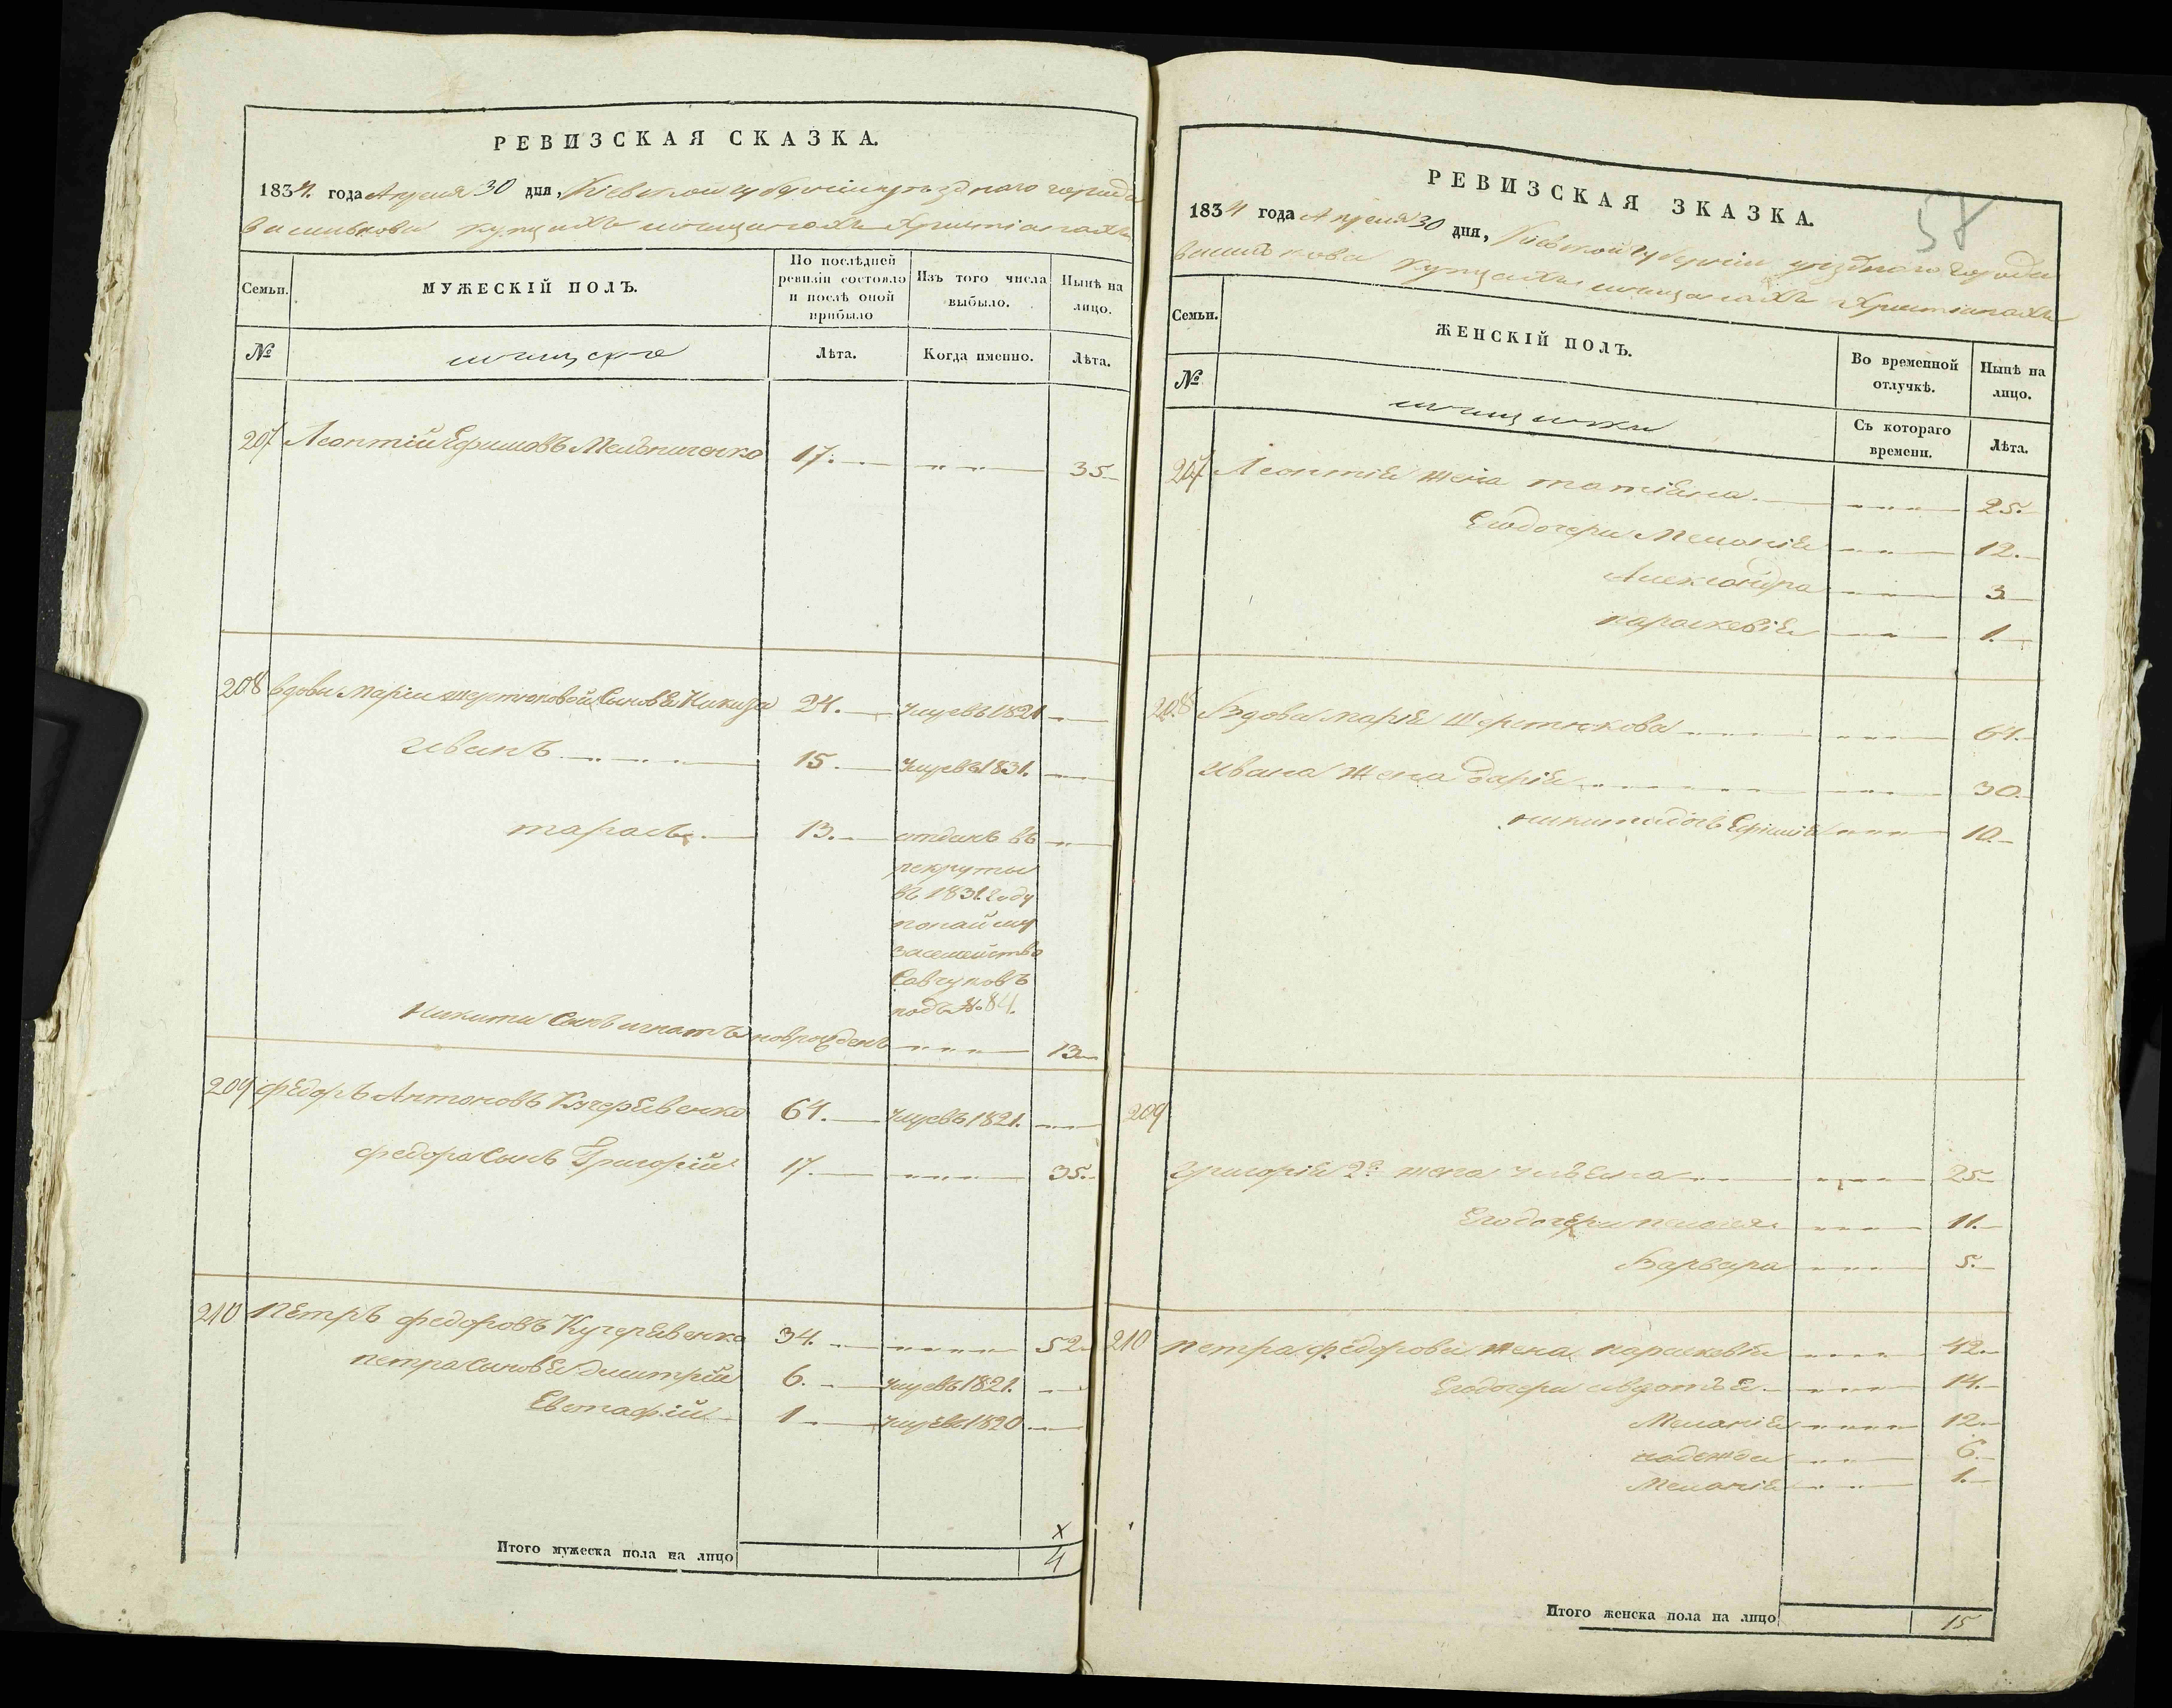 РЕВИЗСКАЯ СКАЗКА.
1834. года Апреля 30 дня, Кіевской губерніи уезднаго города
Василькова купцахъ мещанахъ Христіанахъ
Семьи.
МУЖЕСКІЙ ПОЛЪ.
По послѣдней ревизіи состояло и послѣ оной прибыло
Изъ того числа выбыло.
Нынѣ на лицо.
№
мещане
Лѣта.
Когда именно.
Лѣта.
207 Леонтій Ефимовъ Мельниченко 17. 35
208 вдовы Маріи Шерстюковой Сыновья Никита 24. умре въ 1821
Иванъ 15 умре въ 1831.
тарасъ 13. отданъ въ
рекруты
въ 1831 году
по найму
за семейство
Савчуковъ
подъ № 84.
Никиты Сынъ игнатъ новрожденъ 13
209 федоръ Антоновъ Кучеравенко 64. умре въ 1821.
федора Сынъ Григорій 17. 35.
210 Петръ федоровъ Кучеравенко 34. 52
петра Сыновья дмитрій 6. умре въ 1821.
Евстафій 1 умре въ 1820
x
Итого мужеска пола на лицо 4
58
РЕВИЗСКАЯ ЗКАЗКА.
1834 года Апреля 30 дня, Кіевской губерніи уезднаго города
Василькова купцахъ мещанахъ Христіанахъ
Семьи.
ЖЕНСКІЙ ПОЛЪ.
Во временной отлучкѣ.
Нынѣ на лицо.
№
мещанки
Съ котораго времени.
Лѣта.
207 Леонтія жена татіяна 25.
Его дочери Меланія 12.
Александра 3
параскевія 1.
208 Вдова марія Шерстюкова 64.
Ивана жена дарія 30.
никиты дочь Ефимія 10.
209
Григорія 2я жена ульяна 25
Его дочери пелагея 11.
Варвара 5.
210 петра федорова жена параскевія 42
Его дочери авдотья 14.
Меланія 12
надежда 6.
Меланія 1.
Итого женска пола на лицо 15